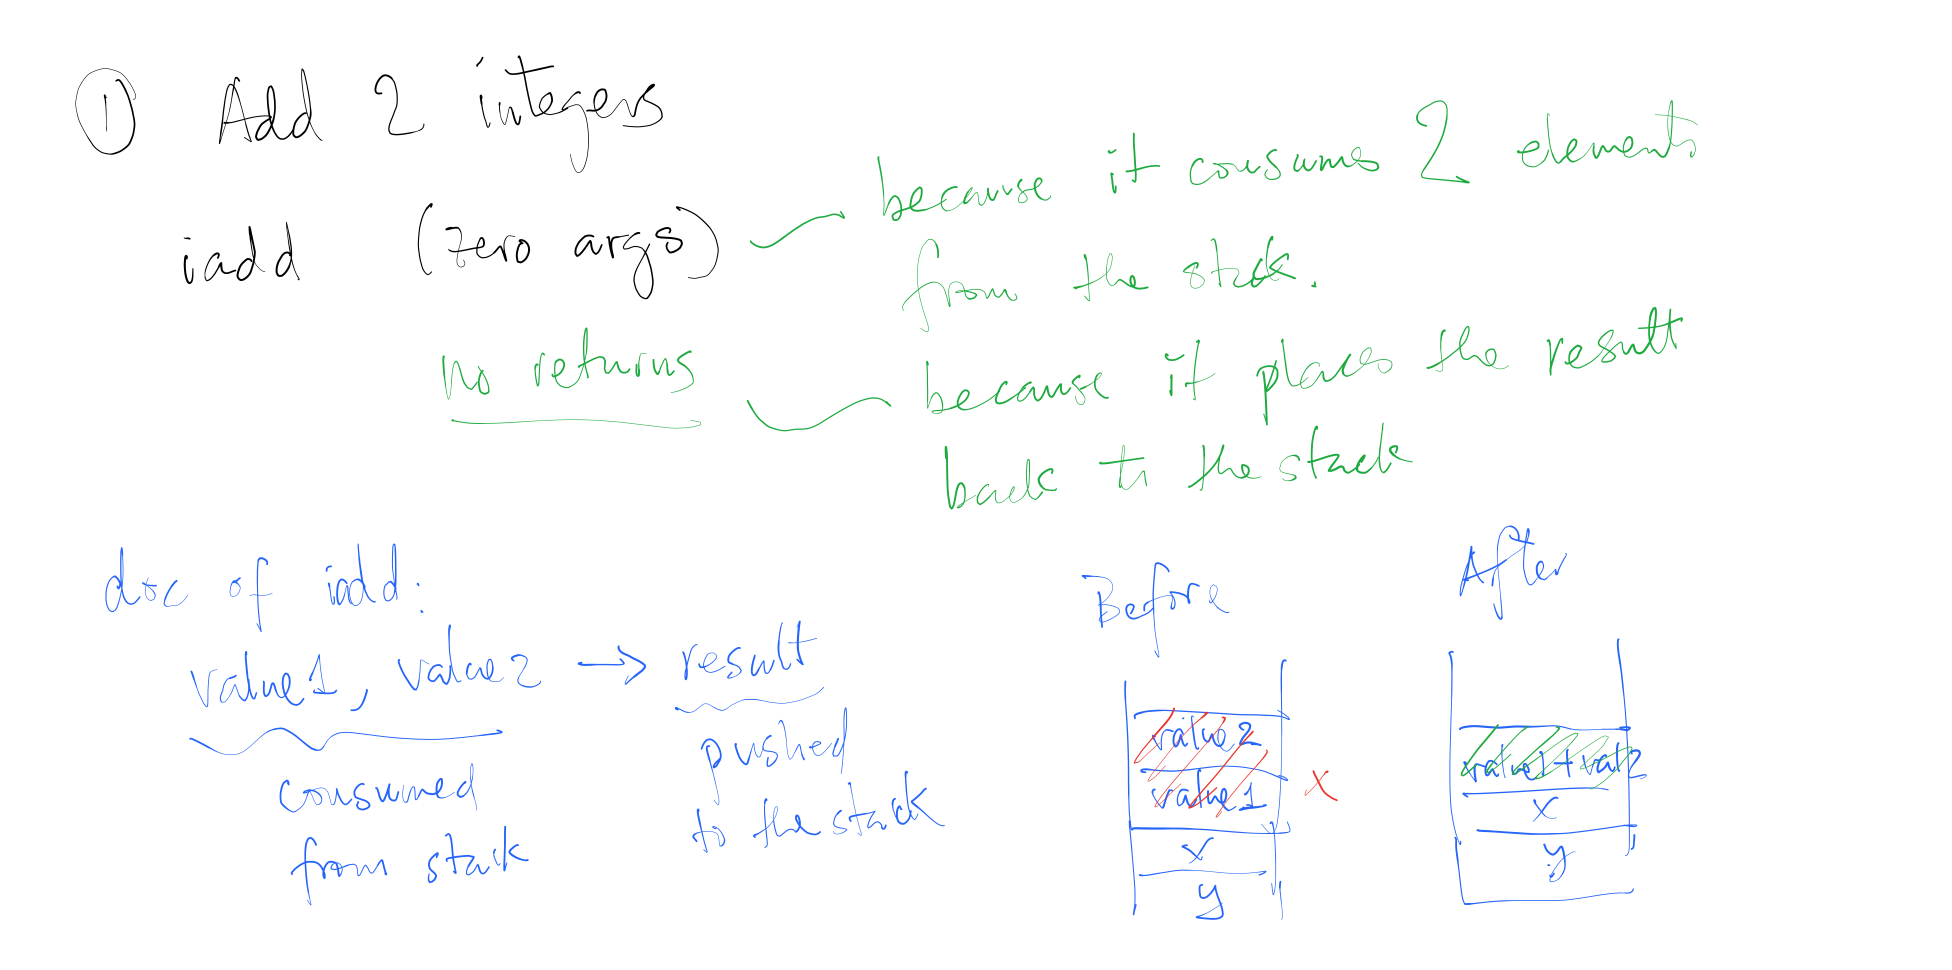 ① Add 2 integers
iadd (zero args)
because it consumes 2 elements
from the stack.
no returns
because it places the result
back to the stack
doc of iadd:
value1, value2 → result
consumed
from stack
pushed
to the stack
Before
value2
value1
x
x
y
After
value1+val2
x
y